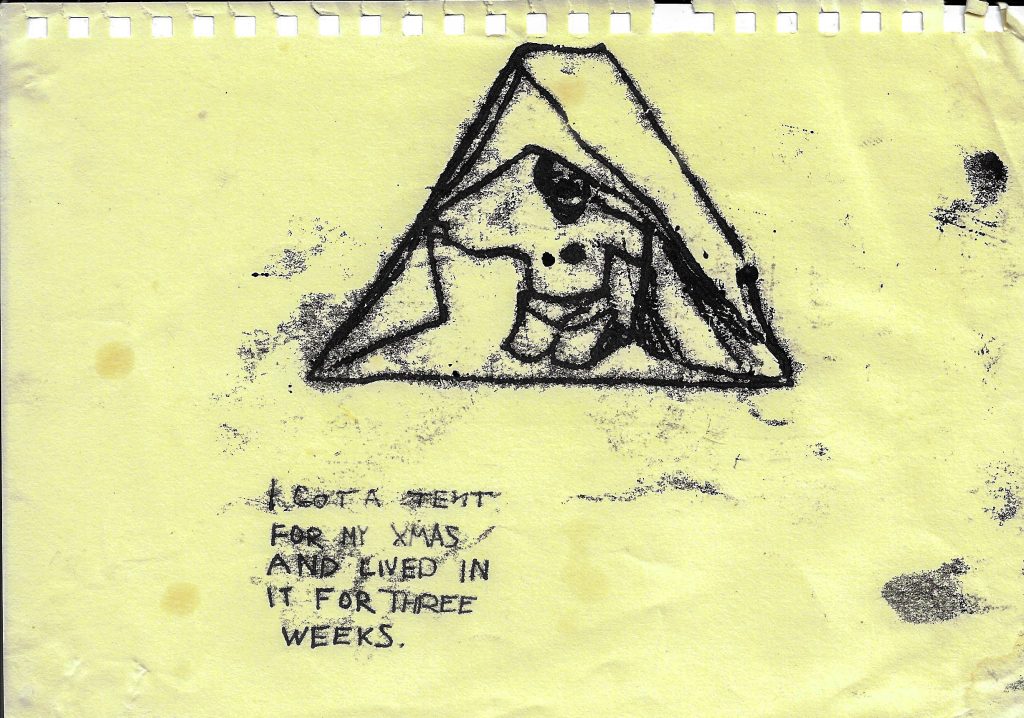 I GOT A TENT
FOR MY XMAS
AND LIVED IN
IT FOR THREE
WEEKS.